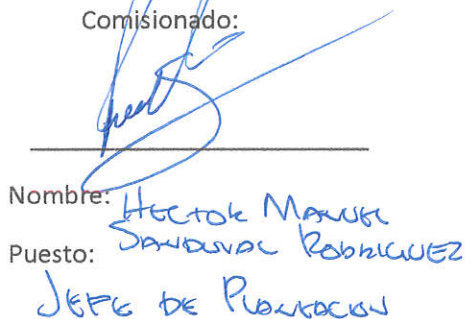 Comisionado:
Nombre: HECTOR MANUEL
Puesto: SANDOVAL RODRIGUEZ
JEFE DE PLANEACION